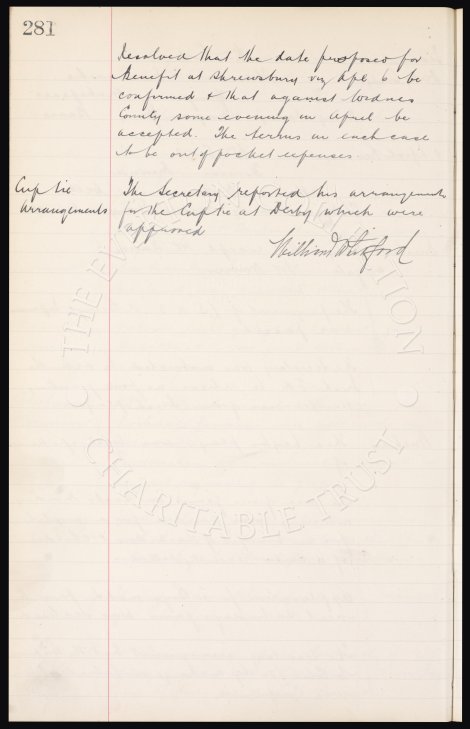 281
Resolved that the date proposed for
Benefit at Shrewsbury viz Apl 6 be
confirmed & that against Widnes
County some evening in April be
accepted. The terms in each case
to be out of pocket expenses
Cup tie
arrangements
The Secretary reported his arrangements
for the Cup tie at Derby which were
approved
THE EVERTON COLLECTION
CHARITABLE TRUST